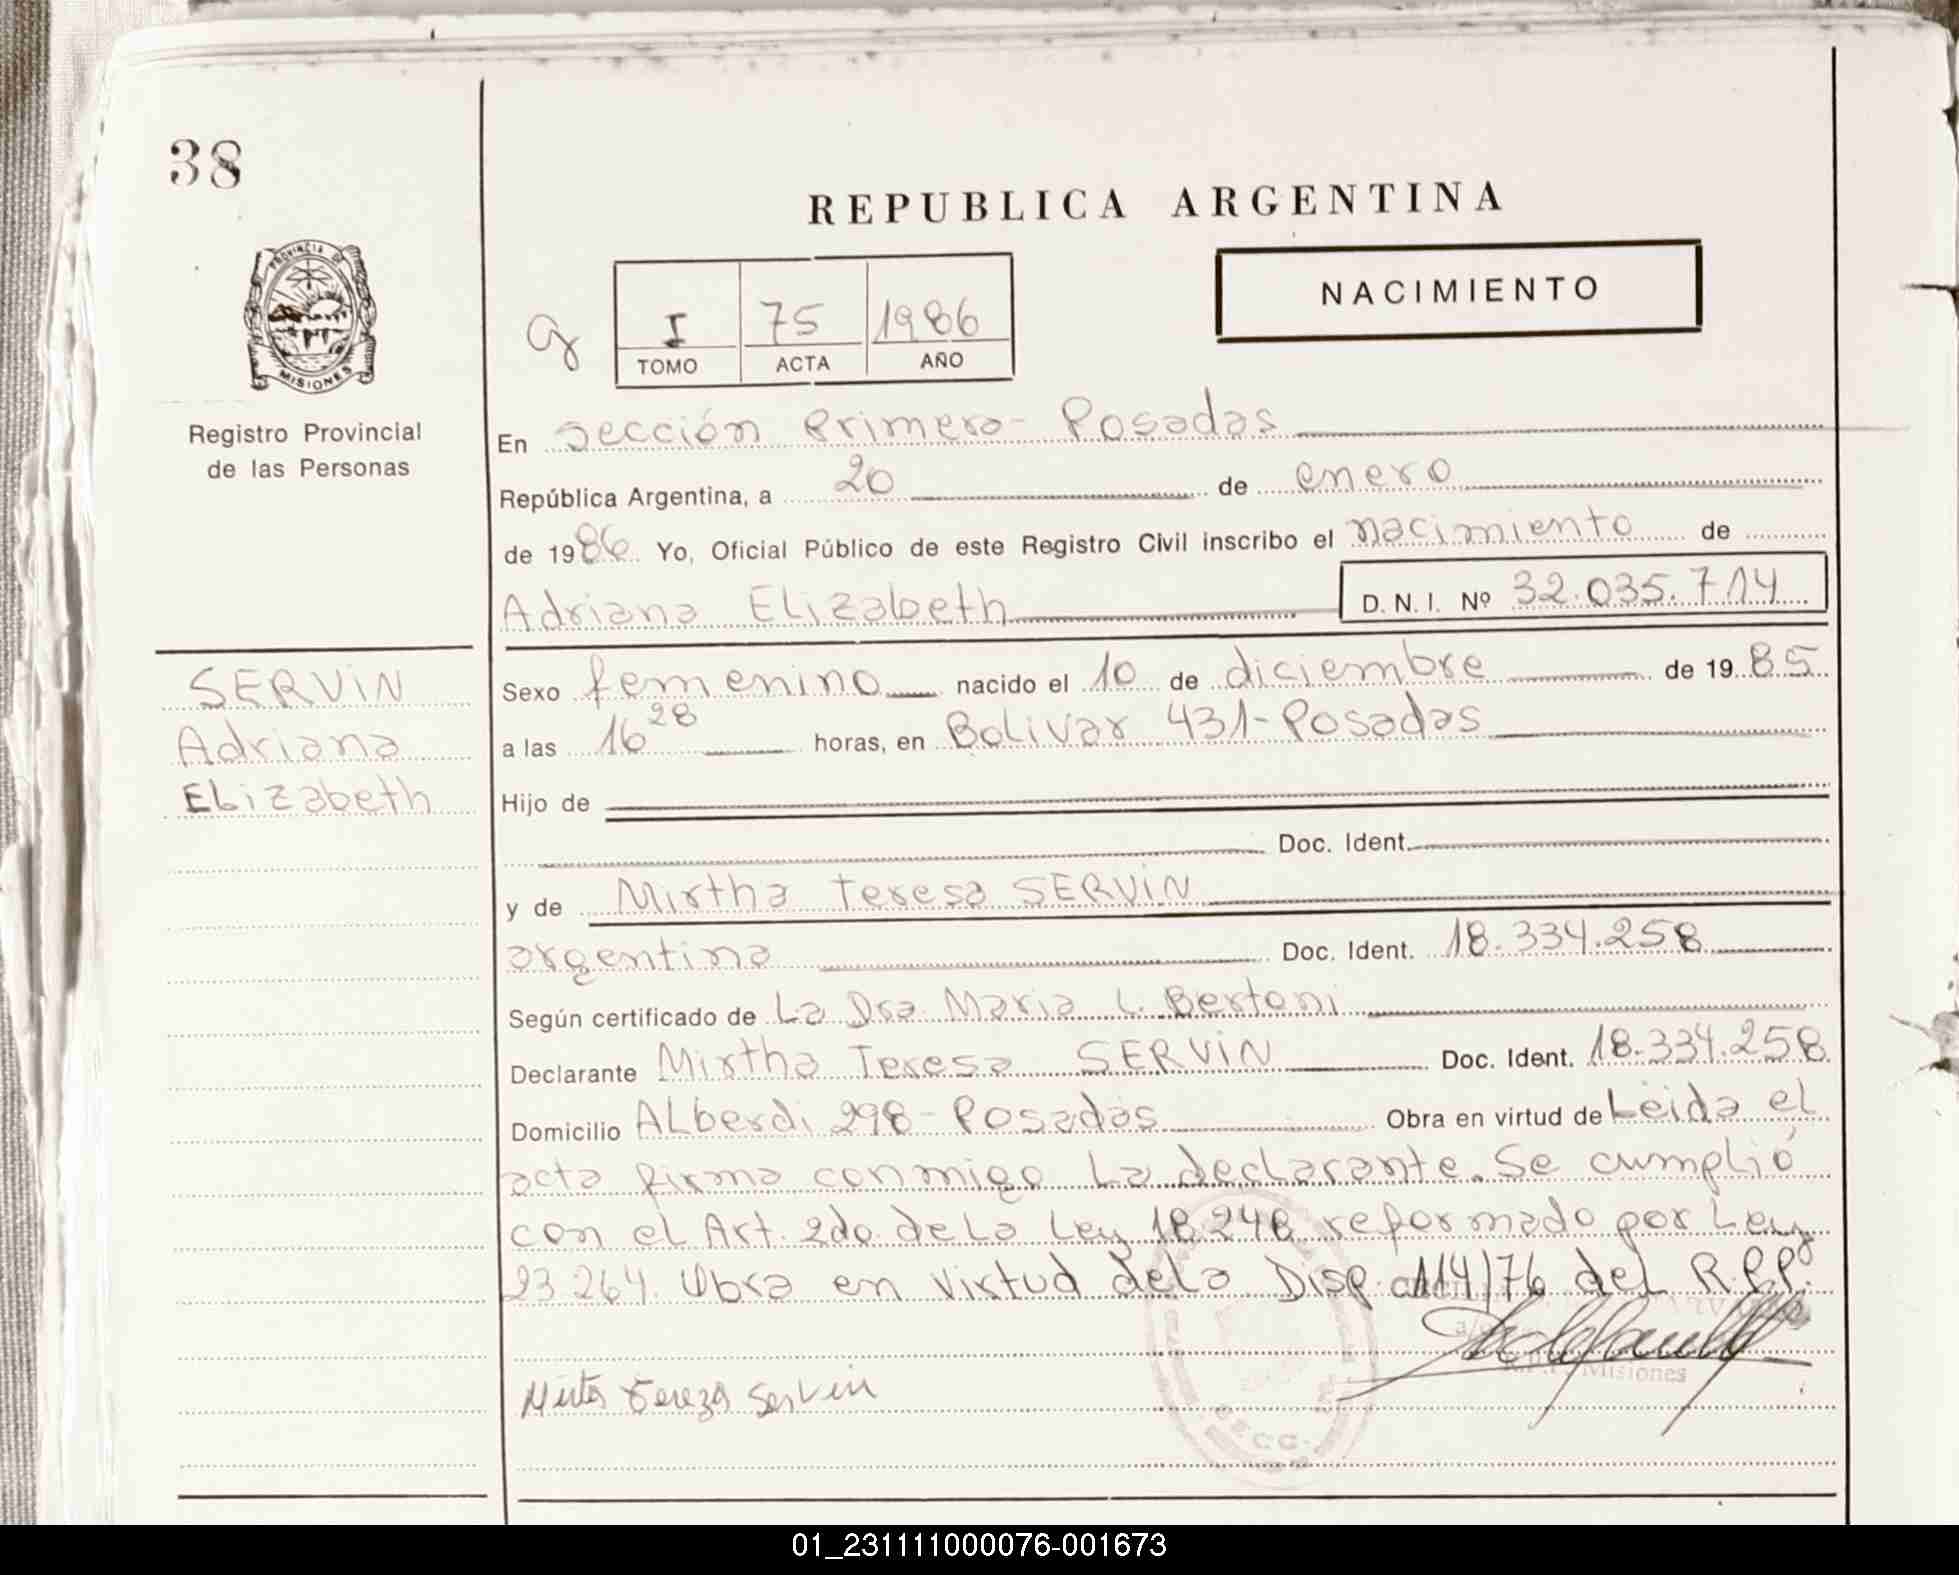 38
REPUBLICA ARGENTINA
PROVINCIA DE
MISIONES
NACIMIENTO
I 75 1986
TOMO ACTA AÑO
Registro Provincial
de las Personas
En Sección Primera - Posadas
República Argentina, a 20 de enero
de 1986 Yo, Oficial Público de este Registro Civil inscribo el nacimiento de
Adriana Elizabeth D.N.I. Nº 32.035.714
SERVIN
Adriana
Elizabeth
Sexo femenino nacido el 10 de diciembre de 1985
a las 16 28 horas, en Bolivar 431-Posadas
Hijo de
Doc. Ident.
y de Mirtha Teresa SERVIN
argentina Doc. Ident. 18.334.258
Según certificado de La Dra. Maria L. Bertoni
Declarante Mirtha Teresa SERVIN Doc. Ident. 18.334.258
Domicilio Alberdi 298 - Posadas Obra en virtud de Leida el
acta firma conmigo La declarante. Se cumplió
con el Art. 2do. de La Ley 18.248 reformado por Ley
23.264. Obra en virtud de la Disp. 114/76 del R.P.P.
Misiones
Mirta Tereza Servin
SECC.
01_231111000076-001673